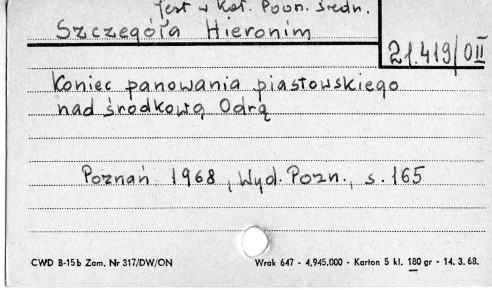 Jest w Kat. Pozn. Średn.
Szczegóła Hieronim
21.419/OII
Koniec panowania piastowskiego
nad środkową Odrą
Poznań 1968, Wyd. Pozn., s. 165
CWD B-15b Zam. Nr 317/DW/ON
Wrak 647 - 4.945.000 - Karton 5 kl. 180 gr - 14. 3. 68.